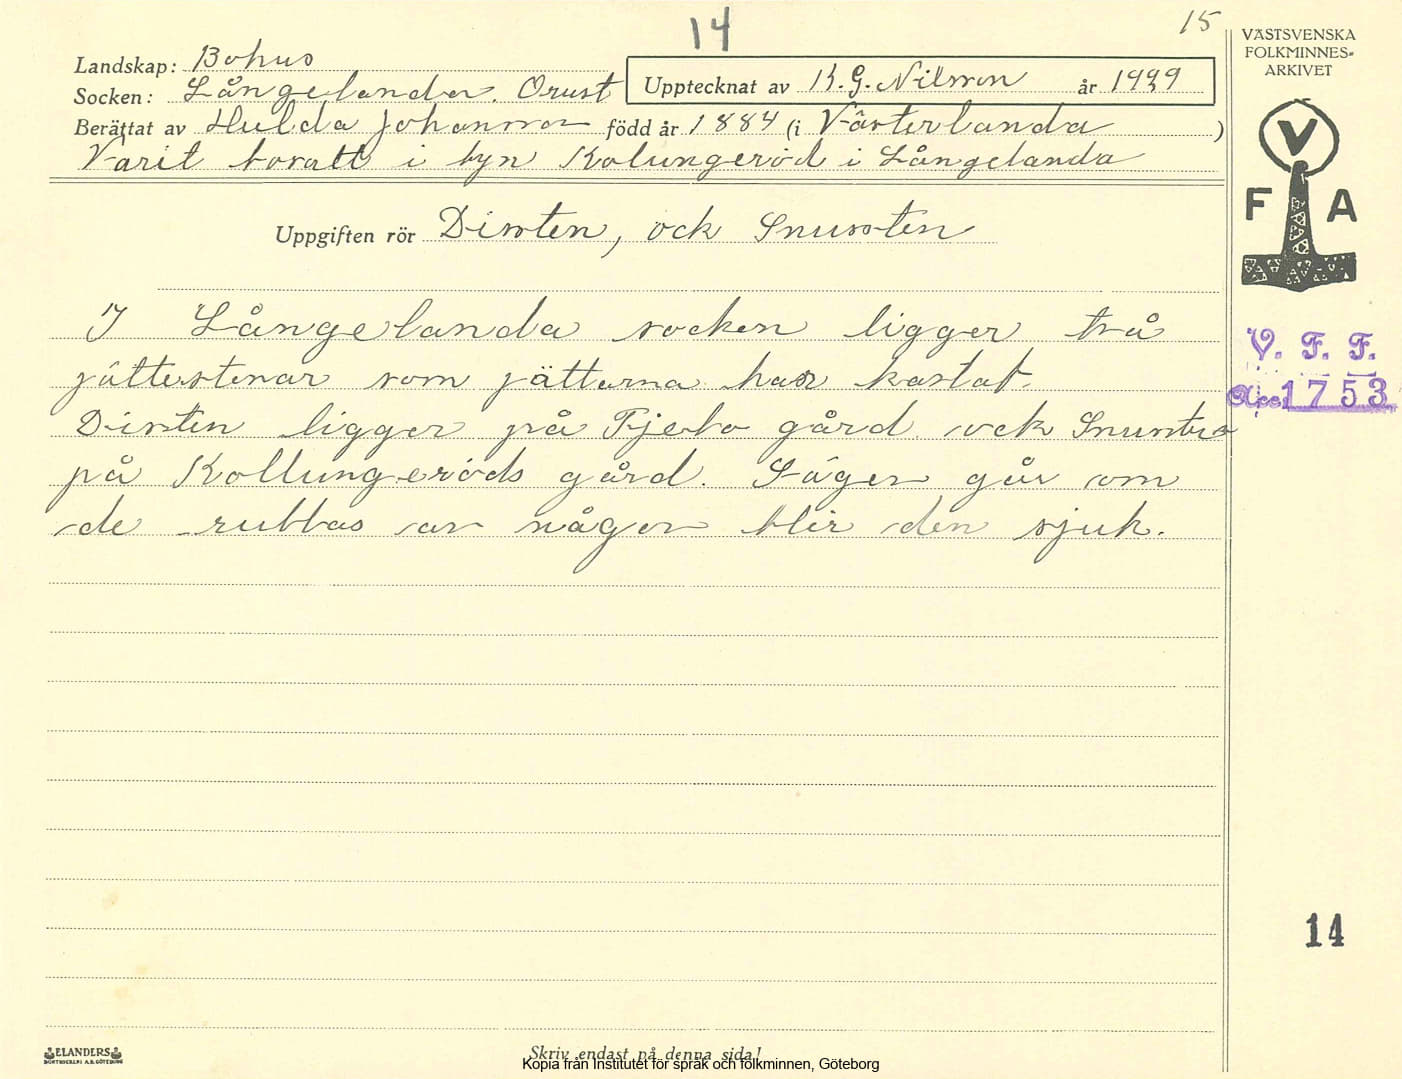 14
15
Landskap: Bohus
Socken: Långelanda. Orust
Upptecknat av K.G. Nilsson år 1939
Berättat av Hulda Johansson född år 1884 (i Västerlanda)
Varit boratt i byn Kolungeröd i Långelanda
Uppgiften rör Dirsten, ock Snussten
I Långelanda socken ligger två
jättestenar som jätterna har kastat.
Dirsten ligger på Tjebo gård ock Snusten
på Kollungeröds gård. Sägen går om
de rubbas av någon blir den sjuk.
VÄSTSVENSKA
FOLKMINNES-
ARKIVET
V
F A
V. F. F.
Acc. 1753
14
ELANDERS
BOKTRYCKERI A.B. GÖTEBORG
Skriv endast på denna sida!
Kopia från Institutet för språk och folkminnen, Göteborg